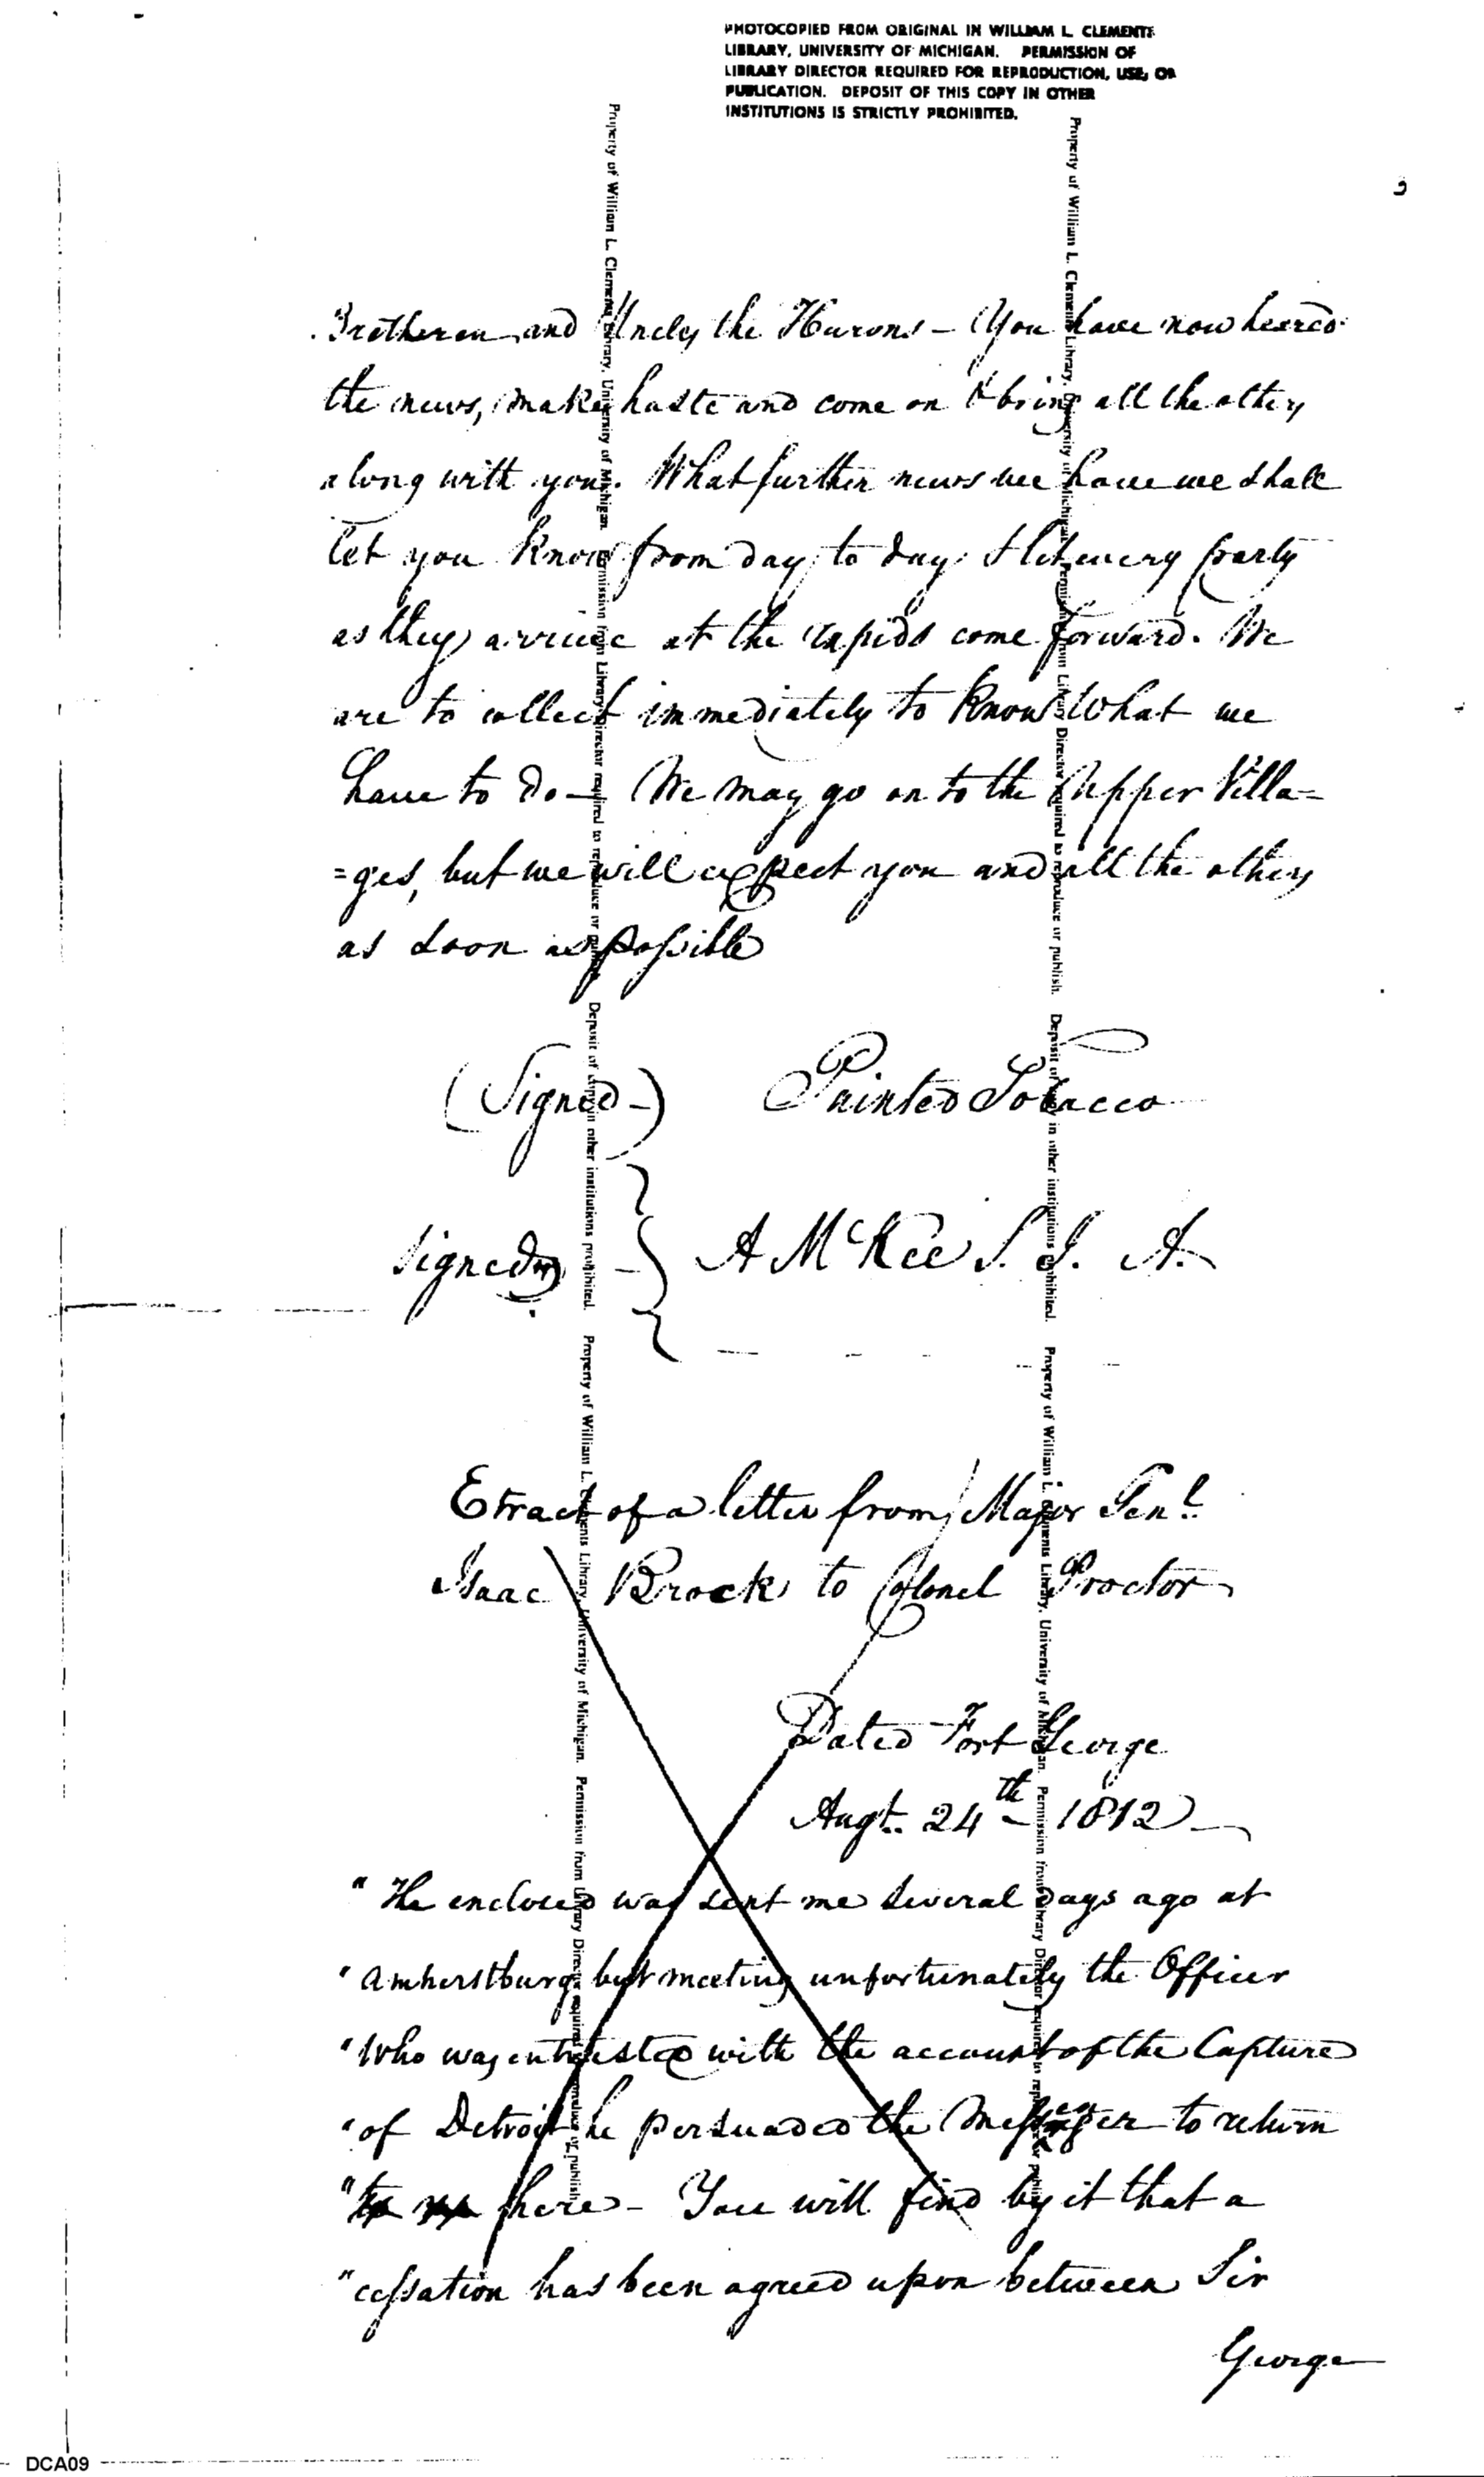 PHOTOCOPIED FROM ORIGINAL IN WILLIAM L. CLEMENTS
LIBRARY, UNIVERSITY OF MICHIGAN. PERMISSION OF
LIBRARY DIRECTOR REQUIRED FOR REPRODUCTION, USE, OR
PUBLICATION. DEPOSIT OF THIS COPY IN OTHER
INSTITUTIONS IS STRICTLY PROHIBITED.
Brotheren and Uncles the Hurons – You have now heard
the news, make haste and come on & bring all the others
along with you. What further news we have we shall
let you know from day to day, & let every party
as they arrive at the rapids come forward. We
are to collect immediately to know what we
have to do – We may go on to the Upper Villa=
=ges, but we will expect you and all the others
as soon as possible
(Signed –) Painted Tobacco
Signed – A McKee S. I. A.
Etract of a letter from Major Genl.
Isaac Brock to Colonel Proctor
Dated Fort George
Augt. 24th – 1812 –
" The enclosed was sent me several days ago at
" Amherstburg but meeting unfortunately the Officer
" Who was entrusted with the account of the Capture
" of Detroit he persuaded the Messenger to return
" here – You will find by it that a
" cessation has been agreed upon between Sir
George
Property of William L. Clements Library, University of Michigan. Permission from Library Director required to reproduce or publish. Deposit of copy in other institutions prohibited. Property of William L. Clements Library, University of Michigan. Permission from Library Director required to reproduce or publish.
Property of William L. Clements Library, University of Michigan. Permission from Library Director required to reproduce or publish. Deposit of copy in other institutions prohibited. Property of William L. Clements Library, University of Michigan. Permission from Library Director required to reproduce or publish.
DCA09